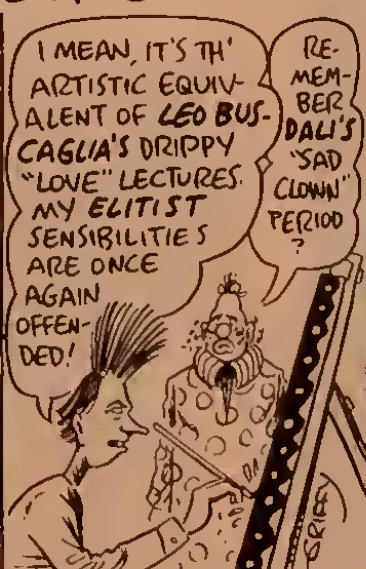 I MEAN, IT'S TH'
ARTISTIC EQUIV-
ALENT OF LEO BUS-
CAGLIA'S DRIPPY
"LOVE" LECTURES.
MY ELITIST
SENSIBILITIES
ARE ONCE
AGAIN
OFFEN-
DED!
RE-
MEM-
BER
DALI'S
"SAD
CLOWN"
PERIOD
?
GRIFFY